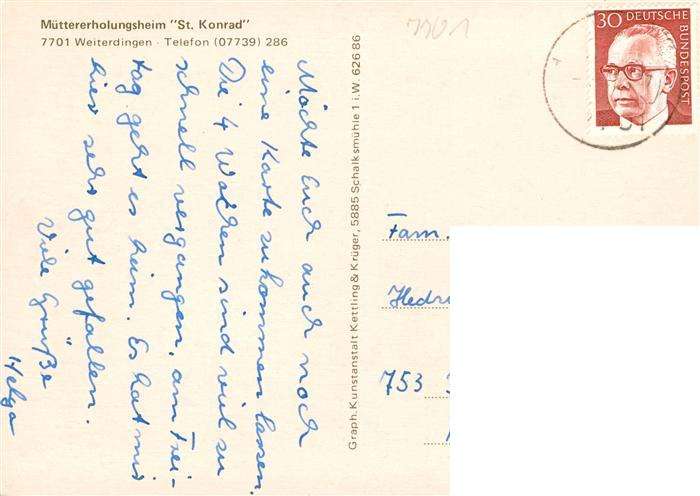 Müttererholungsheim "St. Konrad"
7701 Weiterdingen · Telefon (07739) 286
Möchte Euch auch noch
eine Karte zukommen lassen.
Die 4 Wochen sind viel zu
schnell vergangen, am Frei-
tag geht es heim. Es hat mir
hier sehr gut gefallen.
Viele Grüße
Helga
Graph. Kunstanstalt Kettling & Krüger, 5885 Schalksmühle 1 i. W. 626 86
7701
30 DEUTSCHE
BUNDESPOST
Fam.
Hedri
753